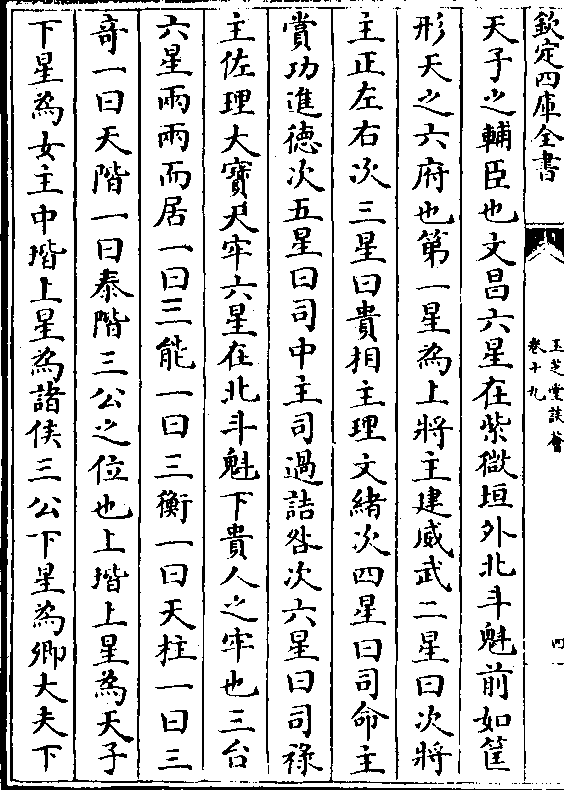 欽定四庫全書
玉芝堂談薈
卷十九
四
天子之輔臣也文昌六星在紫微垣外北斗魁前如筐
形天之六府也第一星為上將主建威武二星曰次將
主正左右次三星曰貴相主理文緒次四星曰司命主
賞功進德次五星曰司中主司過詰咎次六星曰司祿
主佐理大寶天牢六星在北斗魁下貴人之牢也三台
六星兩兩而居一曰三能一曰三衡一曰天柱一曰三
竒一曰天階一曰泰階三公之位也上堦上星為天子
下星為女主中堦上星為諸侯三公下星為卿大夫下